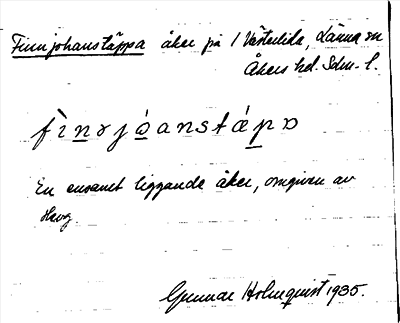 Finnjohanstäppa åker på 1 Västerlida, Länna sn
Åkers hd. Sdm. l.
fìnɤjóanstápɒ
En ensamt liggande åker, omgiven av
skog
Gunnar Holmquist 1935.